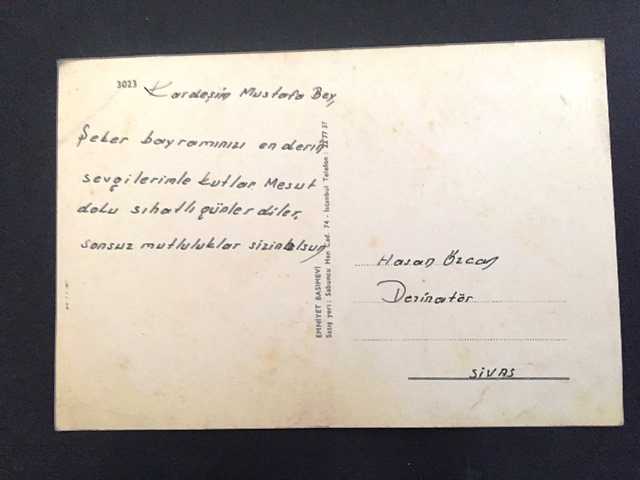 3023
Kardeşim Mustafa Bey
Şeker bayramınızı en derin
sevgilerimle kutlar Mesut
dolu sıhatlı günler diler,
sonsuz mutluluklar sizin olsun
EMNİYET BASIMEVİ
Satış yeri: Sabuncu Han Cad. 74 - İstanbul Telefon: 22 77 37
Hasan Özcan
Dezinatör
SİVAS